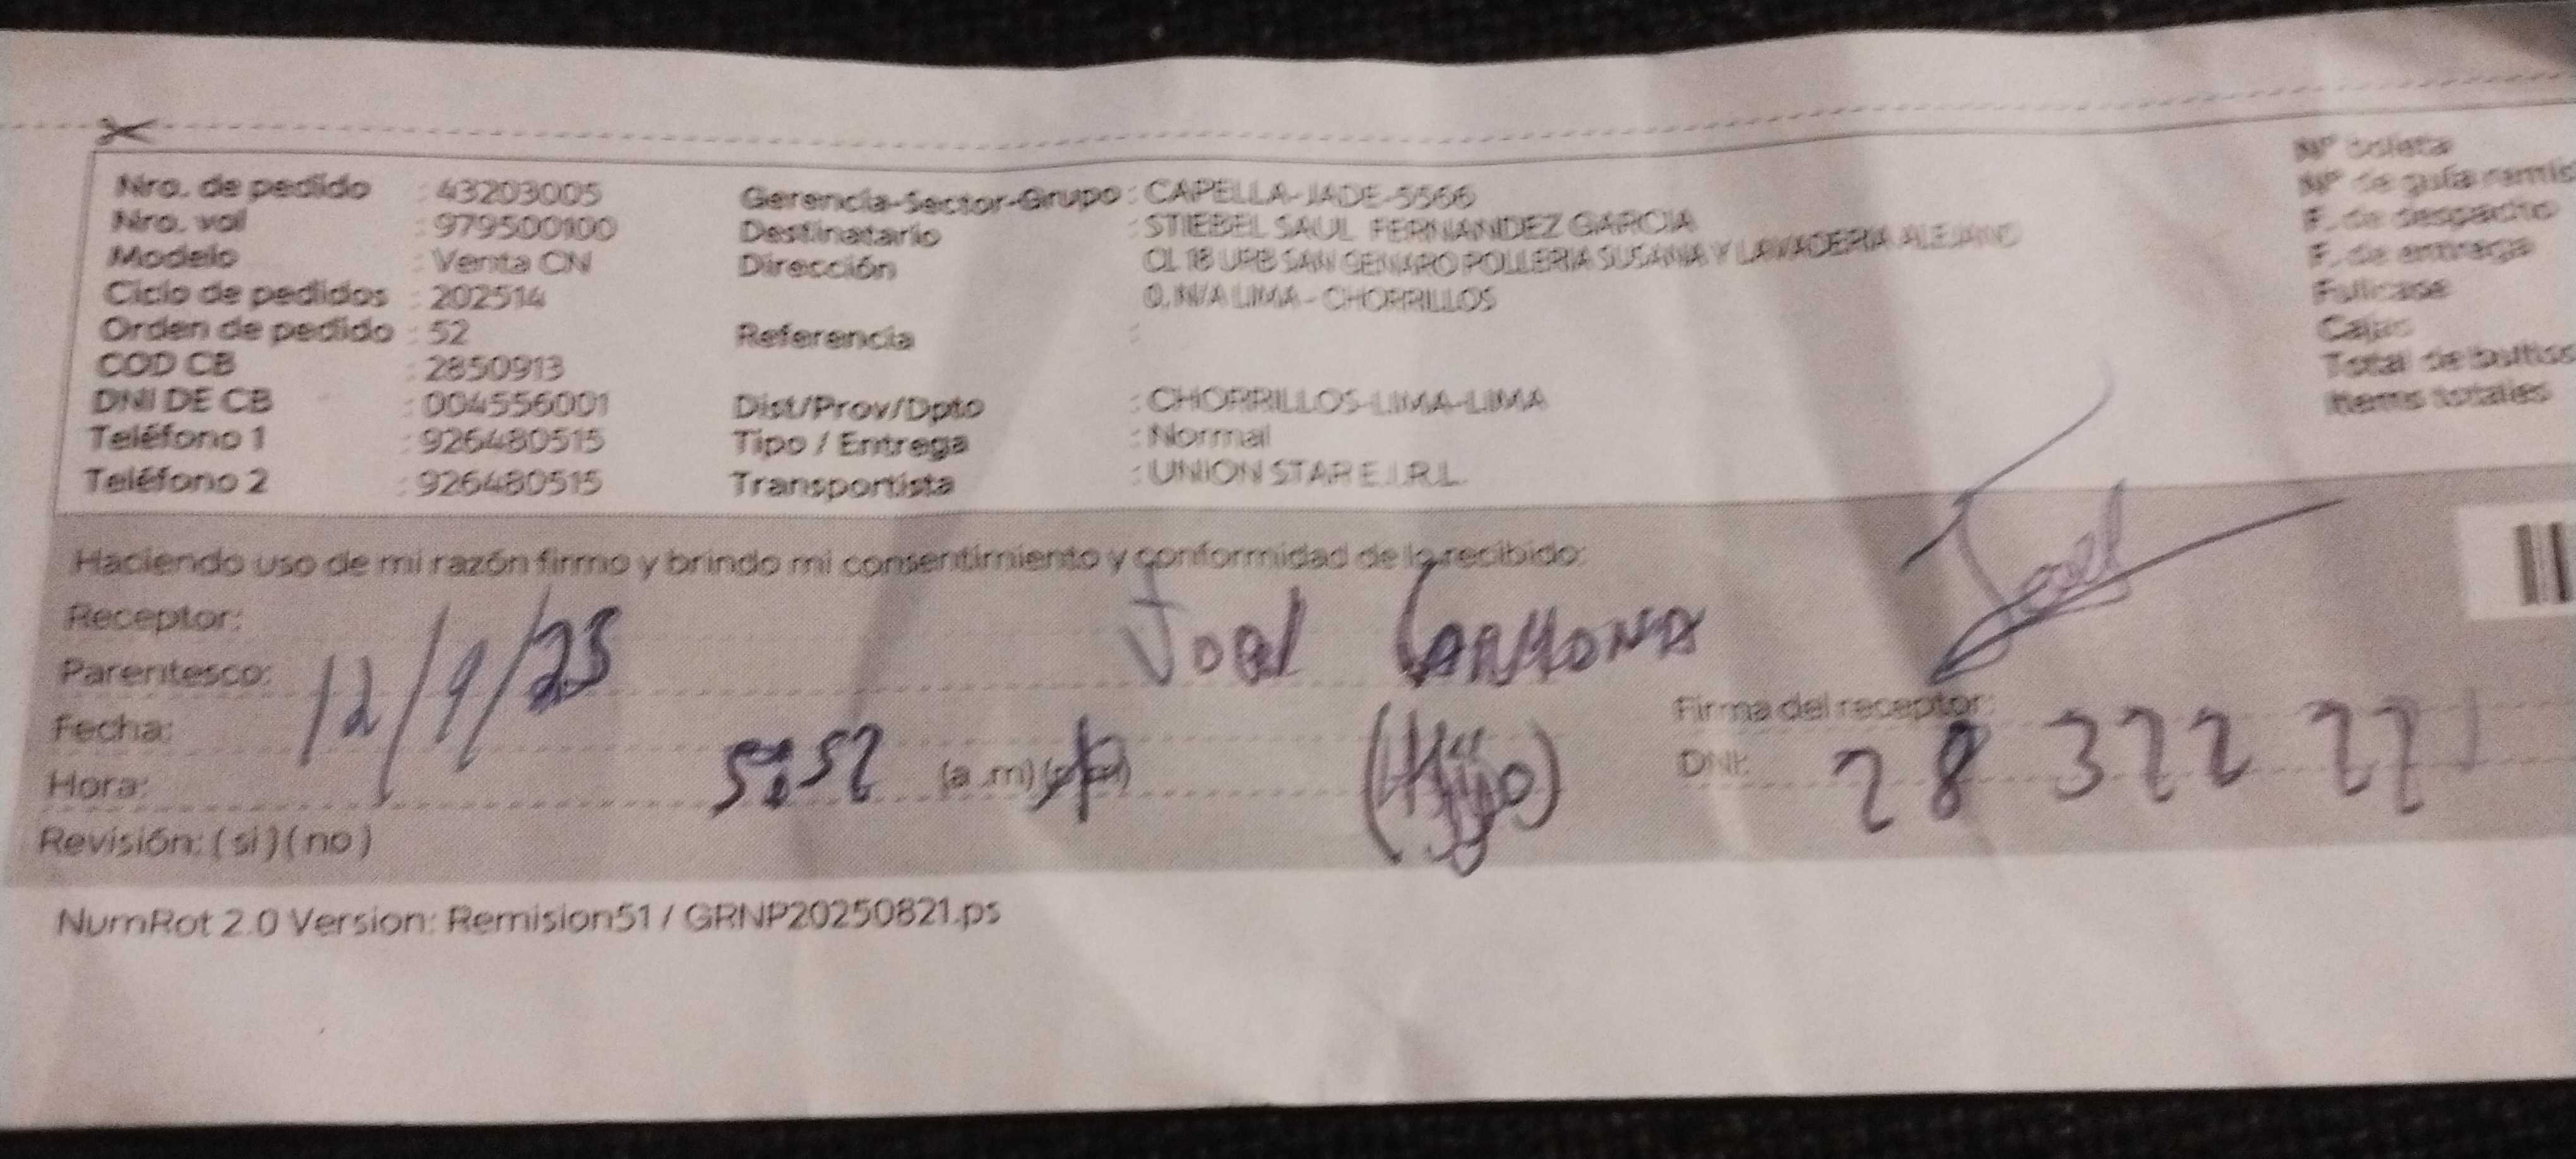 Nro. de pedido : 43203005 Gerencia-Sector-Grupo : CAPELLA-JADE-5566 N° boleta
Nro. vol : 979500100 Destinatario : STIEBEL SAUL FERNANDEZ GARCIA N° de guía remis
Modelo : Venta CN Dirección CL 18 URB SAN GENARO POLLERIA SUSANA Y LAVADERIA F. de despacho
Ciclo de pedidos : 202514 0, N/A LIMA - CHORRILLOS F. de entrega
Orden de pedido : 52 Referencia : Fullcase
COD CB : 2850913 Cajas
DNI DE CB : 004556001 Dist/Prov/Dpto : CHORRILLOS-LIMA-LIMA Total de bultos
Teléfono 1 : 926480515 Tipo / Entrega : Normal Items totales
Teléfono 2 : 926480515 Transportista : UNION STAR E.I.R.L.
Haciendo uso de mi razón firmo y brindo mi consentimiento y conformidad de lo recibido:
Receptor: Joel Carmona
Parentesco: (Hijo)
Fecha: 12/9/25 Firma del receptor:
Hora: 5:52 (a .m) DNI: 28 322 221
Revisión: ( si ) ( no )
NumRot 2.0 Version: Remision51 / GRNP20250821.ps